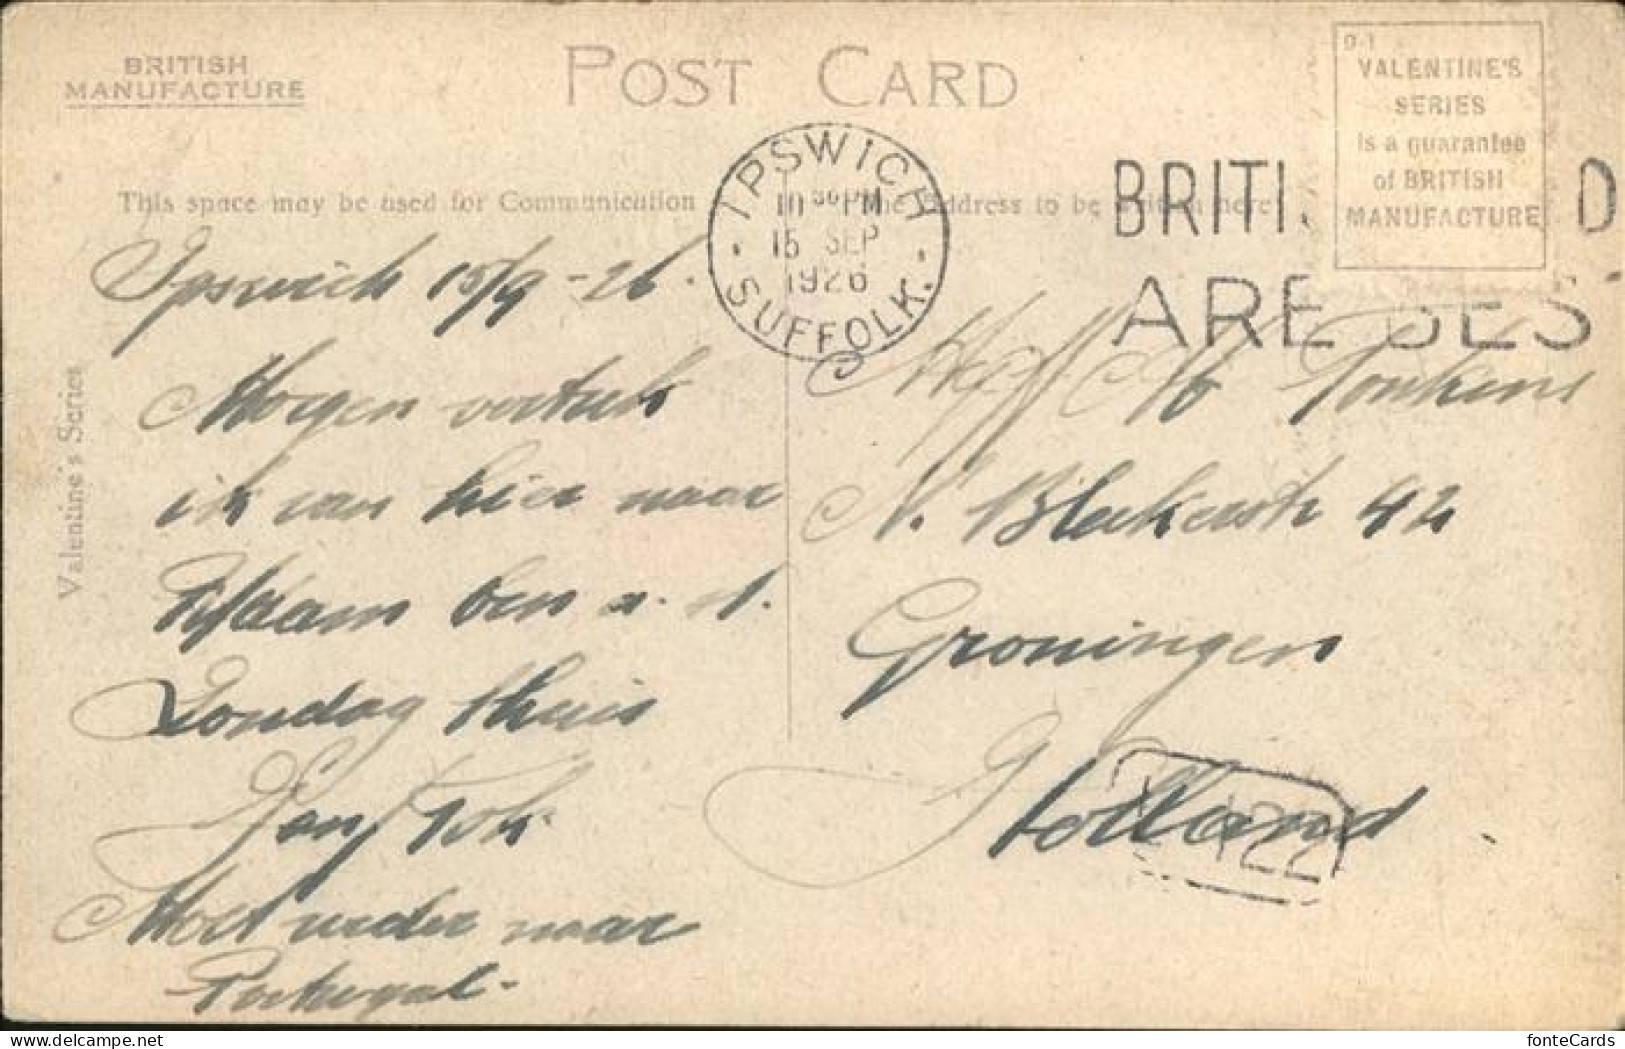 BRITISH
MANUFACTURE
POST CARD
9.1
VALENTINE'S
SERIES
is a guarantee
of BRITISH
MANUFACTURE
IPSWICH
10 30 PM
15 SEP
1926
SUFFOLK.
BRITI D
ARE BES
This space may be used for Communication
Address to be written here
Valentine's Series
Ipswich 15/9-26.
Morgen vertrek
ik van hier naar
R/daam ben a.
Zondag thuis
Moet verder naar
Portugal.
N. Blekerstr 42
Groningen
Holland
122
fonteCards